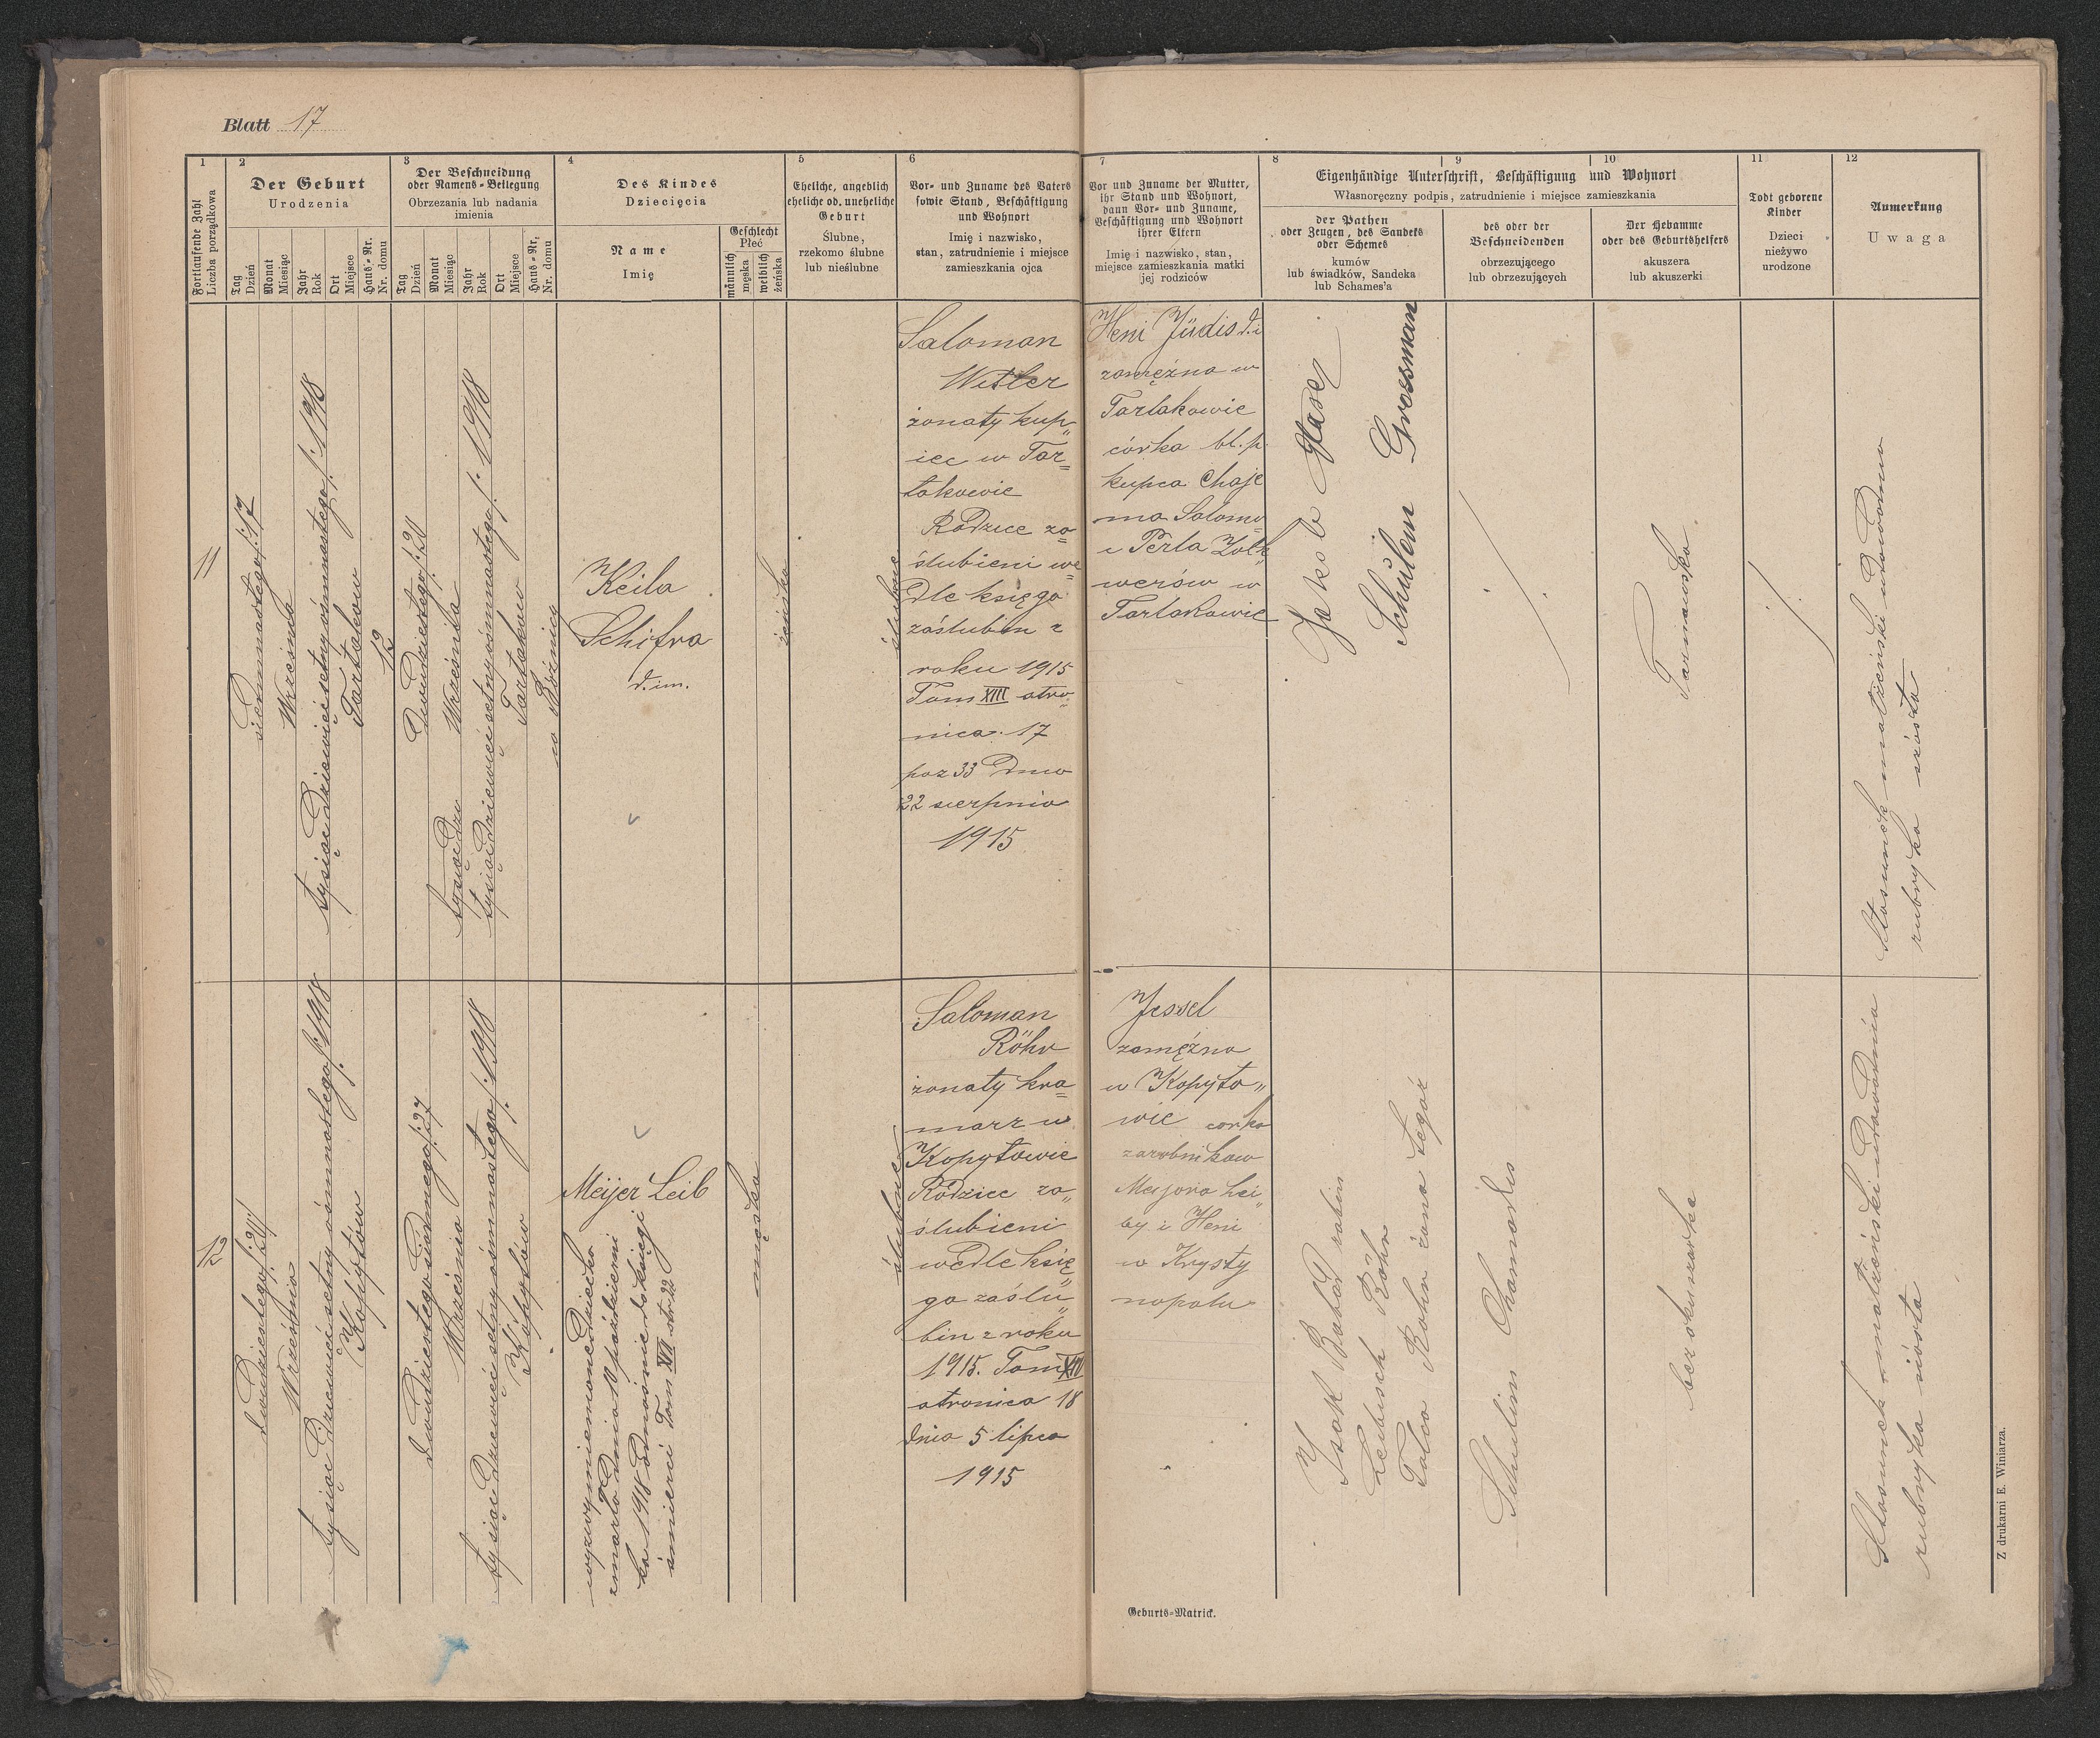 Blatt 17
1
Fortlaufende Zahl
Liczba porządkowa
2
Der Geburt
Urodzenia
Tag
Dzień
Monat
Miesiąc
Jahr
Rok
Ort
Miejsce
Haus-Nr.
Nr. domu
3
Der Beschneidung
oder Namens-Beilegung
Obrzezania lub nadania
imienia
Tag
Dzień
Monat
Miesiąc
Jahr
Rok
Ort
Miejsce
Haus-Nr.
Nr. domu
4
Des Kindes
Dziecięcia
Name
Imię
Geschlecht
Płeć
männlich
męska
weiblich
żeńska
5
Eheliche, angeblich
eheliche od. uneheliche
Geburt
Ślubne,
rzekomo ślubne
lub nieślubne
6
Vor- und Zuname des Vaters
sowie Stand, Beschäftigung
und Wohnort
Imię i nazwisko,
stan, zatrudnienie i miejsce
zamieszkania ojca
7
Vor und Zuname der Mutter,
ihr Stand und Wohnort,
dann Vor- und Zuname,
Beschäftigung und Wohnort
ihrer Eltern
Imię i nazwisko, stan,
miejsce zamieszkania matki
jej rodziców
8
9
10
Eigenhändige Unterschrift, Beschäftigung und Wohnort
Własnoręczny podpis, zatrudnienie i miejsce zamieszkania
der Pathen
oder Zeugen, des Sandeks
oder Schemes
kumów
lub świadków, Sandeka
lub Schames'a
des oder der
Beschneidenden
obrzezującego
lub obrzezujących
Der Hebamme
oder des Geburtshelfers
akuszera
lub akuszerki
11
Todt geborene
Kinder
Dzieci
nieżywo
urodzone
12
Anmerkung
Uwaga
11
siemnastego /:17
Września
tysiąc dziewięćsetny ośmnastego /:1918
Tartaków
12
Dwudziestego /:20
Września
tysiąc dzie
tysiąc dziewięćsetny ośmnastego /: 1918
Tartaków
w Bożnicy
Keila
Schifra
d. im.
żeńska
ślubne
Saloman
Witler
żonaty kup„
iec w Tar=
takowie
Rodzice za=
ślubieni we=
dle księga
zaślubin z
roku 1915
Tom XIII stro„
nica 17
poz 33 Dnia
22 sierpnia
1915
Heni Jüdis d.i
zamężna w
Tartakowie
córka bł. p.
kupca Chaje
ma Salomo
i Perla Zolk„
werów w
Tartakowie
Jakob Glaser
Schulem Grossman
Tarnawska
Stosunek małżeński udowodnia
rubryka szósta
12
dwudziestego /:20/
Września
tysiąc dziewięćsetny ośmnastego /:1918
Kopytów
dwudziestego siódmego /:27
Września
tysiąc dziewięćsetny ośmnastego /:1918
Kopytów
Meijer Leib
wyżwymiemione dziecko
zmarło dnia 10 październi
ka 1918 odnośnie do księgi
śmierci Tom XVII str. 22
męska
ślubne
Saloman
Röhr
żonaty kra=
marz w
Kopytowie
Rodzice za„
ślubieni
wedle księ„
ga zaślu„
bin z roku
1915. Tom XIII
stronica 18
dnia 5 lipca
1915
Jessel
zamężna
w Kopyto„
wie corka
zarobnikow
Mejora Lei„
by i Heni
w Krysty
nopolu
Isak Babad rabin
Leibisch Röhr
Taba Rohr żona tegoż
Schulim Charasz
bez akuszerka
Stosunek małżeński udowodnia
rubryka szósta
Geburts-Matrick.
Z drukarni E. Winiarza.